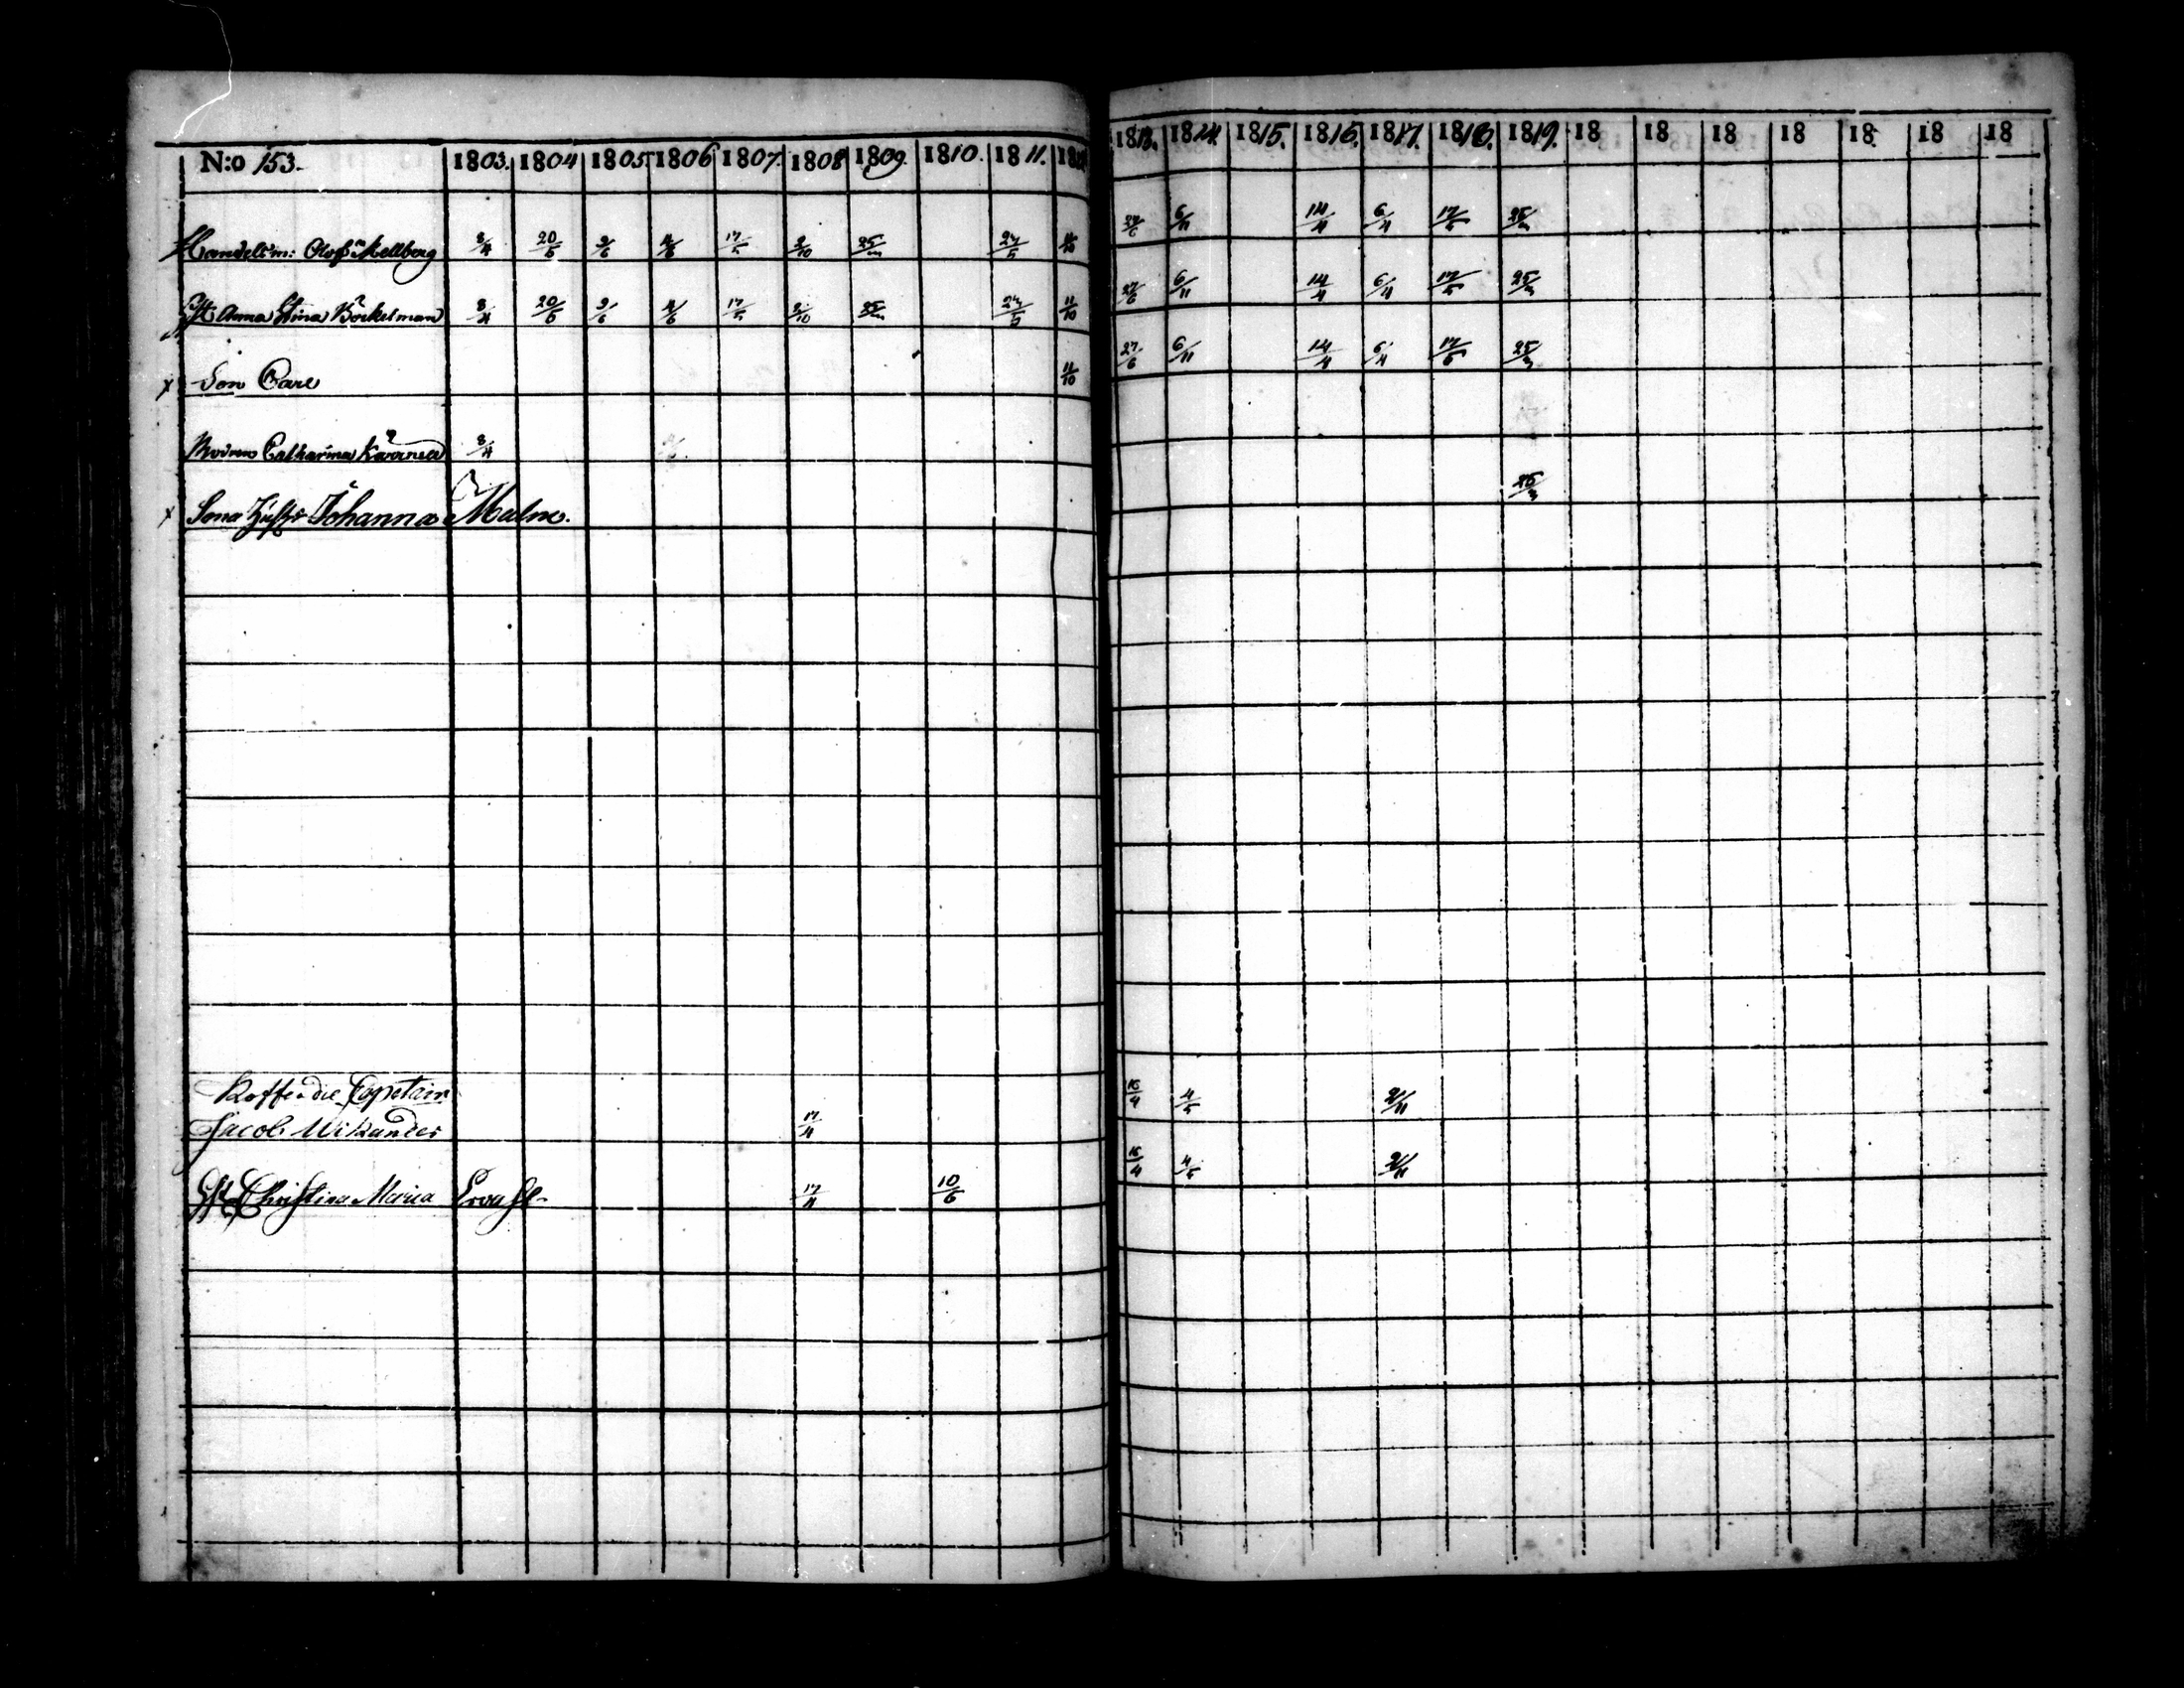 N:o 153. 1803. 1804 1805 1806 1807. 1808 1809. 1810. 1811. 1812 1813. 1814. 1815. 1816. 1817. 1818. 1819. 18 18 18 18 18. 18 18
Handelsm: Olof Mellberg 3/4 20/5 9/6 4/6 17/5 2/10 25/m 24/5 11/10 27/6 6/11 14/4 6/4 17/5 25/m
Hst Anna Stina Böckelman 3/4 20/5 9/6 4/6 17/5 2/10 25/m 24/5 11/10 27/6 6/11 14/4 6/4 17/5 25/m
x Son Carl 11/10 27/6 6/11 14/4 6/4 17/5 25/m
Modren Catharina 3/4
x Sona Johanna Malm. 25/m
Koffardie Capetain
Jacob Wikander 17/4 15/4 4/5 2/11
Hst Christina Maria 17/4 10/6 15/4 4/5 2/11